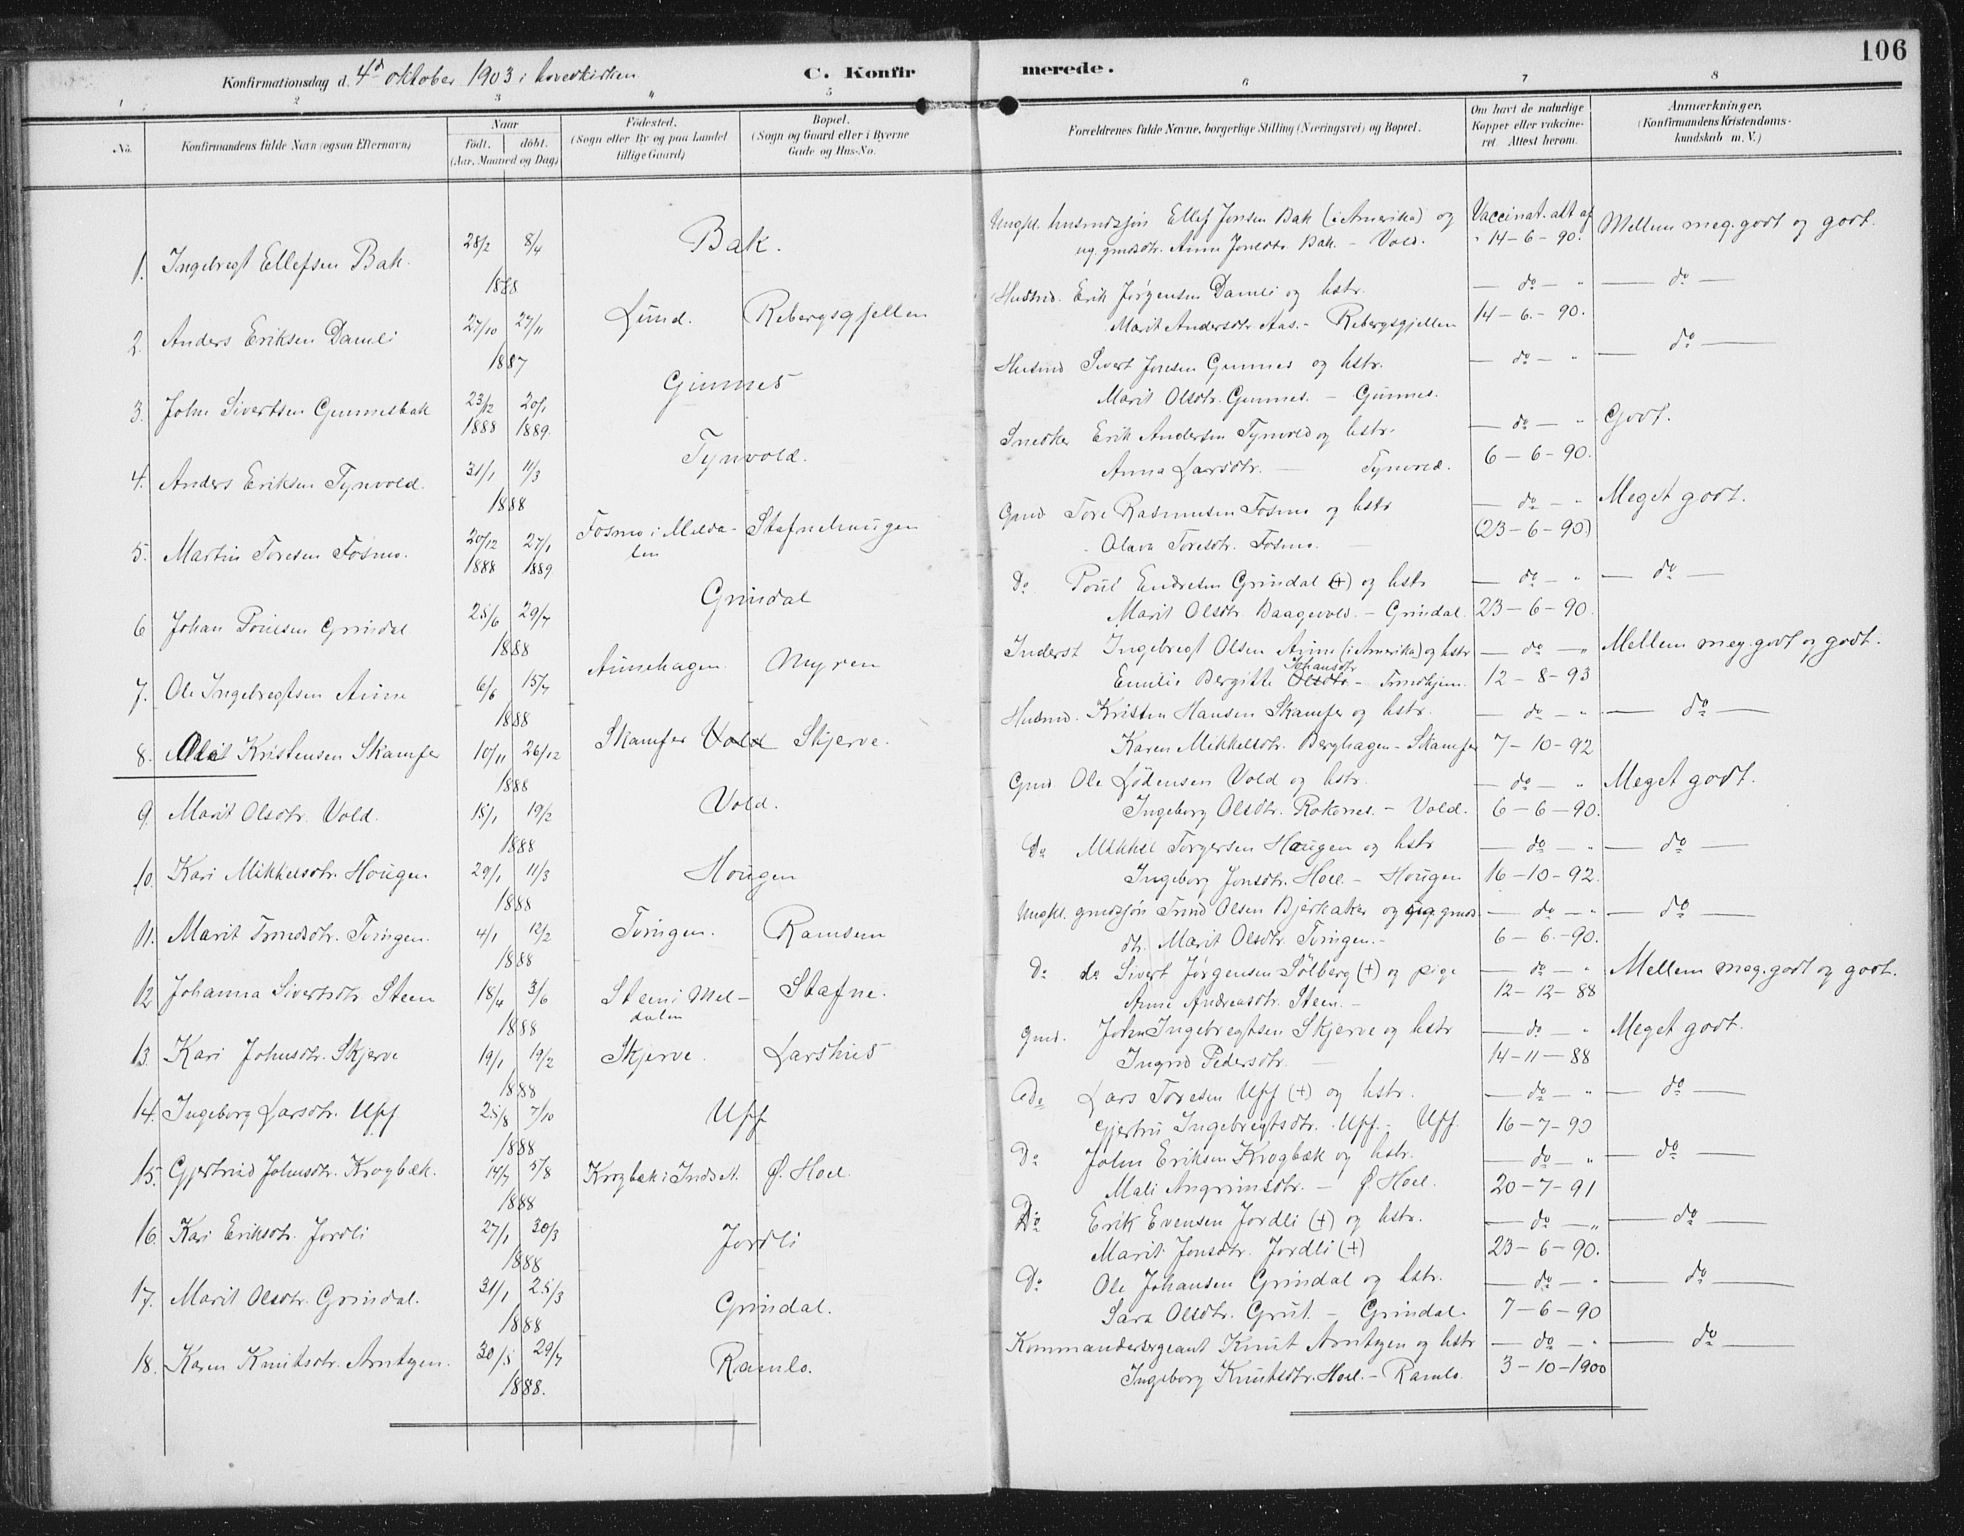 106
Konfirmationsdag d. 4de oktober 1903 i hovedkirken C. Konfirmerede.
1 2 3 4 5 6 7 8
No. Konfirmandens fulde Navn (ogsaa Efternavn) Naar født. døbt. (Aar, Maaned og Dag) Fødested. (Sogn eller By og paa Landet tillige Gaard) Bopæl. (Sogn og Gaard eller i Byerne Gade og Hus-No. Forældrenes fulde Navne, borgerlige Stilling (Næringsvei) og Bopæl. Om havt de naturlige Kopper eller vakcineret. Attest herom. Anmærkninger. (Konfirmandens Kristendomskundskab m. V.)
1. Ingebregt Ellefsen Bak. 28/2 8/4 1888 Bak. Ungkl. husmdssøn Ellef Jonsen Bak (i Amerika) og Vaccinat. alt af Mellem meg. godt og godt.
ug. gmdsdtr. Anne Jonsdtr. Bak. - Vold. 14-6-90.
2. Anders Eriksen Damli 27/10 27/11 1887 Lund. Rebergsgjellen Husmd. Erik Jørgensen Damli og hstr. - do - " - do -
Marit Andersdtr. Aas. - Rebergsgjellen 14-6-90.
3. John Sivertsen Gunnesbak 23/12 1888 20/1 1889. Gunnes Husmd Sivert Jonsen Gunnes og hstr. - do - " - do -
Marit Olsdtr. Gunnes. - Gunnes.
4. Anders Eriksen Tynvold. 31/1 11/3 1888 Tynvold. Snedker Erik Andersen Tynvold og hstr. - do - " Godt.
Anna Larsdtr. - Tynvold. 6-6-90.
5. Martin Toresen Fosmo. 20/12 1888 27/1 1889 Fosmo i Meldalen Stafnehaugen Gmd Tore Rasmussen Fosmo og hstr - do - " Meget godt.
Olava Toresdtr. Fosmo. - (23-6-90)
6 Johan Poulsen Grindal 25/6 29/7 1888 Grindal Do Poul Endresen Grindal (+) og hstr - do - " - do -
Marit Olsdtr. Baagevold. - Grindal. 23-6-90.
7. Ole Ingebregtsen Aune 6/6 15/7 1888 Aunehagen. Myren Inderst Ingebregt Olsen Aune (i Amerika) og hstr - do - " Mellem meg. godt og godt.
Emilie Bergitte Olsdtr. Johansdtr - Trondhjem. 12-8-93
8. Olai Kristensen Skamfer 10/11 26/12 1888 Skamfer Vold Skjerve. Husmd. Kristen Hansen Skamfer og hstr. - do - " - do -
Karen Mikkelsdtr. Berghagen - Skamfer 7-10-92
9. Marit Olsdtr. Vold. 15/1 19/2 1888 Vold. Gmd Ole Lødensen Vold og hstr. - do - " Meget godt.
Ingeborg Olsdtr. Rokenes. - Vold. 6-6-90.
10. Kari Mikkelsdtr. Hougen 29/1 11/3 1888 Hougen Do Mikkel Torgersen Hougen og hstr - do - " - do -
Ingeborg Jonsdtr. Hoel. - Hougen 16-10-92.
11. Marit Trondsdtr. Toringen. 4/1 12/2 1888 Toringen. Ramsem Ungkl. gmdssøn Trond Olsen Bjerkaker og gmds- - do - " - do -
dtr. Marit Olsdtr. Toringen. - 6-6-90.
12 Johanna Sivertsdtr. Steen 18/4 3/6 1888 Steen i Meldalen Stafne. Do do Sivert Jørgensen Solberg (+) og pige - do - " Mellem meg. godt og godt.
Anne Andreasdtr. Steen. - 12-12-88
13. Kari Johnsdtr. Skjerve 19/1 19/2 1888 Skjerve. Larshus Gmd. John Ingebregtsen Skjerve og hstr - do - " Meget godt.
Ingrid Pedersdtr. - 14-11-88
14. Ingeborg Larsdtr. Uff 25/8 7/10 1888 Uff Do Lars Toresen Uff (+) og hstr. - do - " - do -
Gjertru Ingebregtsdtr. Uff. - Uff. 16-7-90
15. Gjertrud Johnsdtr. Krogbæk. 14/7 5/8 1888 Krogbæk i Indset. Ø. Hoel. Do John Eriksen Krogbæk og hstr. - do - " - do -
Mali Angrimsdtr. - Ø. Hoel. 20-7-91
16. Kari Eriksdtr. Jordli 27/1 30/3 1888 Jordli Do Erik Evensen Jordli (+) og hstr. - do - " - do -
Marit Jonsdtr. Jordli (+) 23-6-90.
17. Marit Olsdtr. Grindal. 31/1 25/3 1888 Grindal. Do Ole Johansen Grindal og hstr. - do - " - do -
Sara Olsdtr. Grut. - Grindal. 7-6-90
18. Karen Knutsdtr. Arntzen. 30/5 29/7 1888. Ramlo. Kommandersergeant Knut Arntzen og hstr - do - " - do -
Ingeborg Knutsdtr. Hoel. - Ramlo 3-10-1900